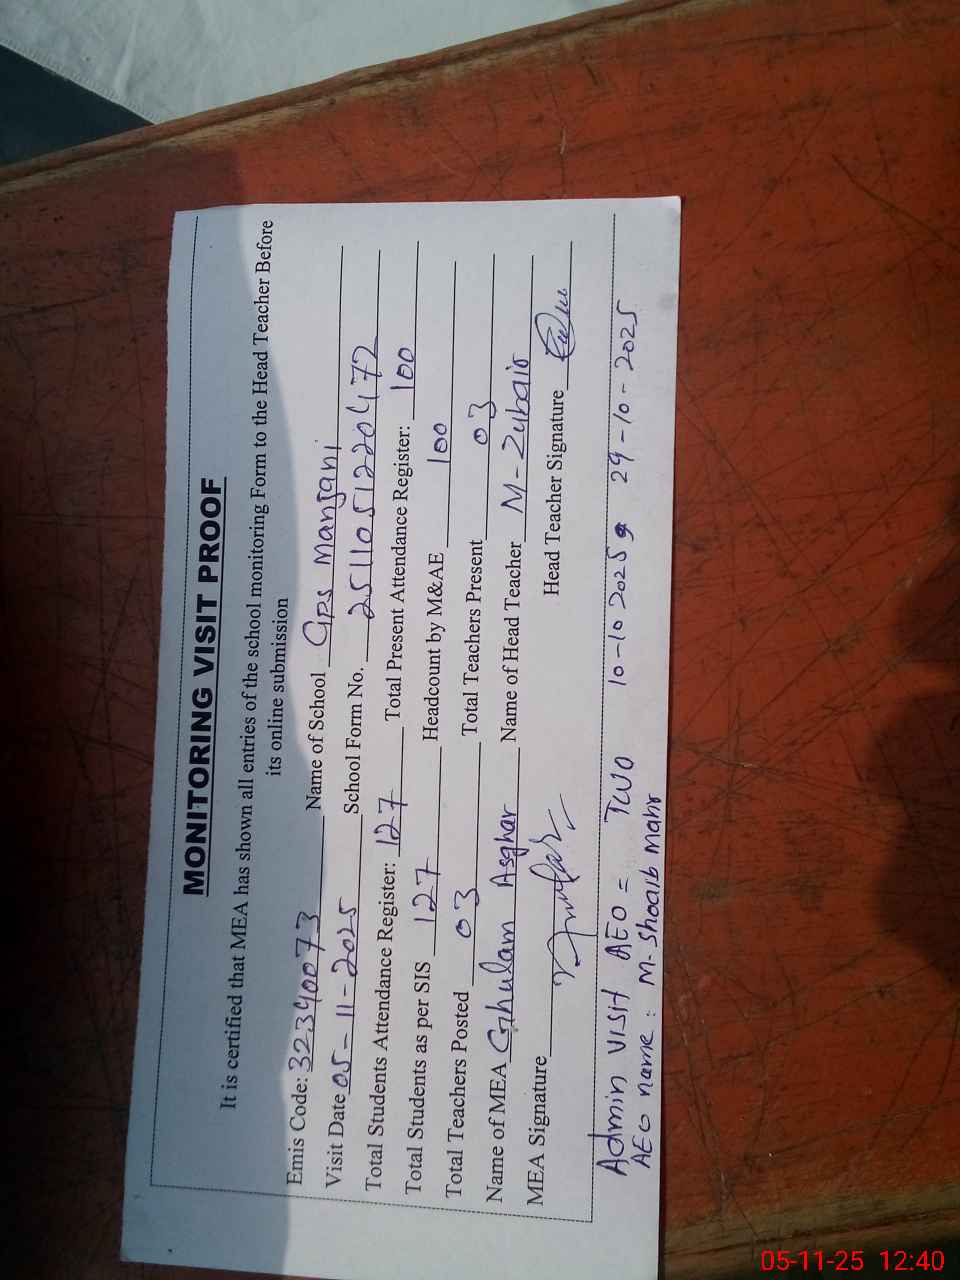 MONITORING VISIT PROOF
It is certified that MEA has shown all entries of the school monitoring Form to the Head Teacher Before
its online submission
Emis Code: 32340073 Name of School GPS Manjani
Visit Date 05-11-2025 School Form No. 2511051220472
Total Students Attendance Register: 127 Total Present Attendance Register: 100
Total Students as per SIS 127 Headcount by M&AE 100
Total Teachers Posted 03 Total Teachers Present 03
Name of MEA Ghulam Asghar Name of Head Teacher M-Zubair
MEA Signature Head Teacher Signature
Admin Visit AEO = Two 10-10 2025 29-10-2025
AEO name: M. Shoaib Mahr
05-11-25 12:40